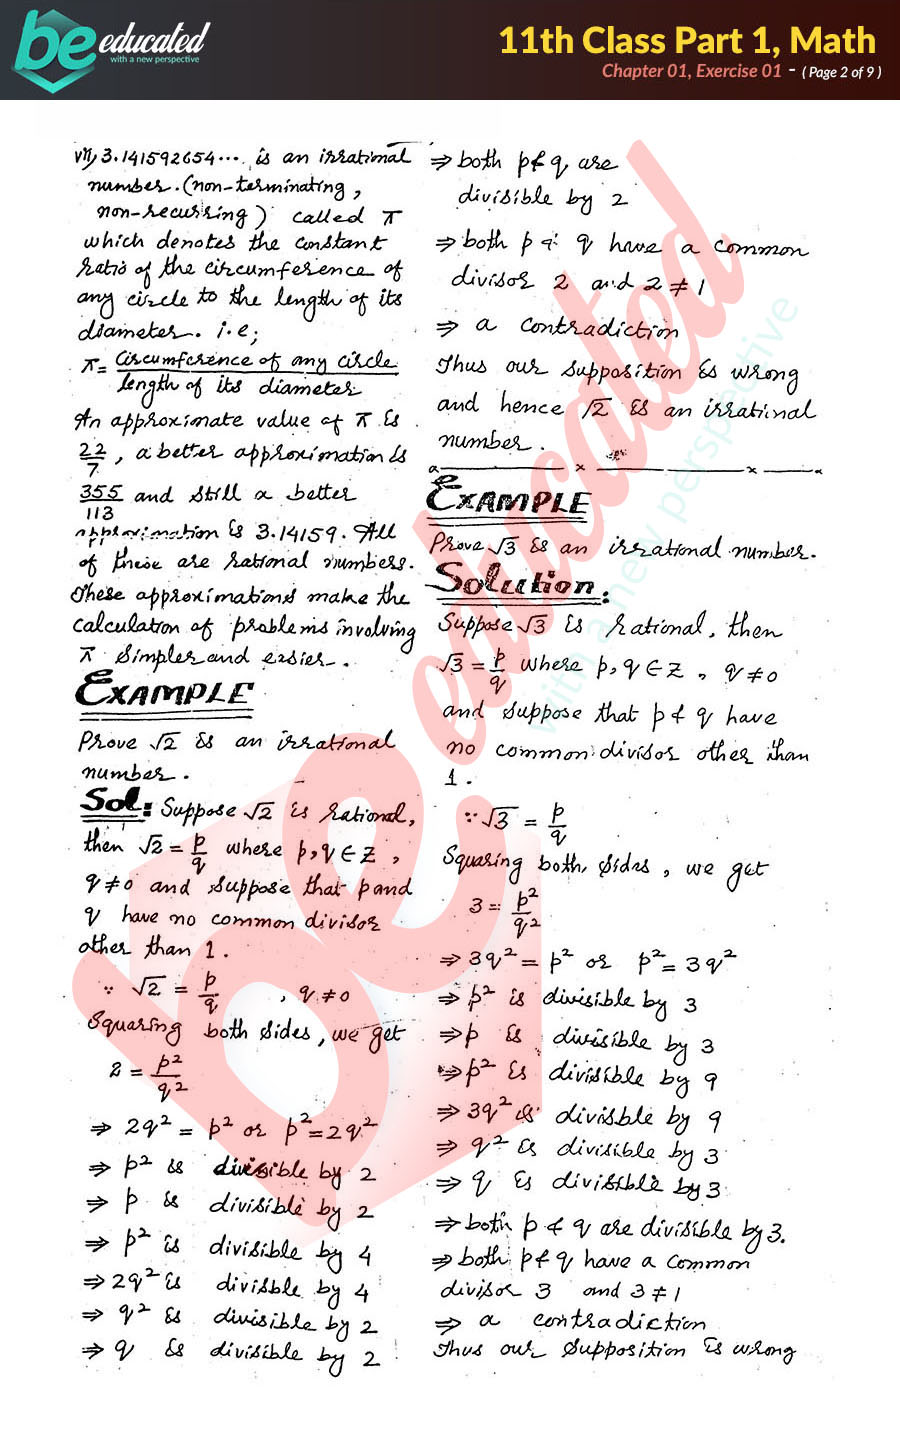 be educated
with a new perspective
11th Class Part 1, Math
Chapter 01, Exercise 01 - ( Page 2 of 9 )
vii, 3.141592654... is an irrational
number. (non-terminating,
non-recurring) called π
which denotes the constant
ratio of the circumference of
any circle to the length of its
diameter. i.e;
π = Circumference of any circle
length of its diameter
An approximate value of π is
22/7, a better approximation is
355/113 and still a better
approximation is 3.14159. All
of these are rational numbers.
These approximations make the
calculation of problems involving
π simpler and easier.
EXAMPLE
Prove √2 is an irrational
number.
Sol: Suppose √2 is rational,
then √2 = p/q where p,q ∈ Z,
q ≠ 0 and suppose that p and
q have no common divisor
other than 1.
∵ √2 = p/q , q ≠ 0
Squaring both sides, we get
2 = p²/q²
⇒ 2q² = p² or p² = 2q²
⇒ p² is divisible by 2
⇒ p is divisible by 2
⇒ p² is divisible by 4
⇒ 2q² is divisble by 4
⇒ q² is divisible by 2
⇒ q is divisible by 2
⇒ both p & q are
divisible by 2
⇒ both p & q have a common
divisor 2 and 2 ≠ 1
⇒ a contradiction
Thus our supposition is wrong
and hence √2 is an irrational
number.
EXAMPLE
Prove √3 is an irrational number.
Solution:
Suppose √3 is rational, then
√3 = p/q where p,q ∈ Z , q ≠ 0
and suppose that p & q have
no common divisor other than
1.
∵ √3 = p/q
Squaring both sides, we get
3 = p²/q²
⇒ 3q² = p² or p² = 3q²
⇒ p² is divisible by 3
⇒ p is divisible by 3
⇒ p² is divisible by 9
⇒ 3q² is divisble by 9
⇒ q² is divisible by 3
⇒ q is divisible by 3
⇒ both p & q are divisible by 3.
⇒ both p & q have a common
divisor 3 and 3 ≠ 1
⇒ a contradiction
Thus our supposition is wrong
be educated
with a new perspective